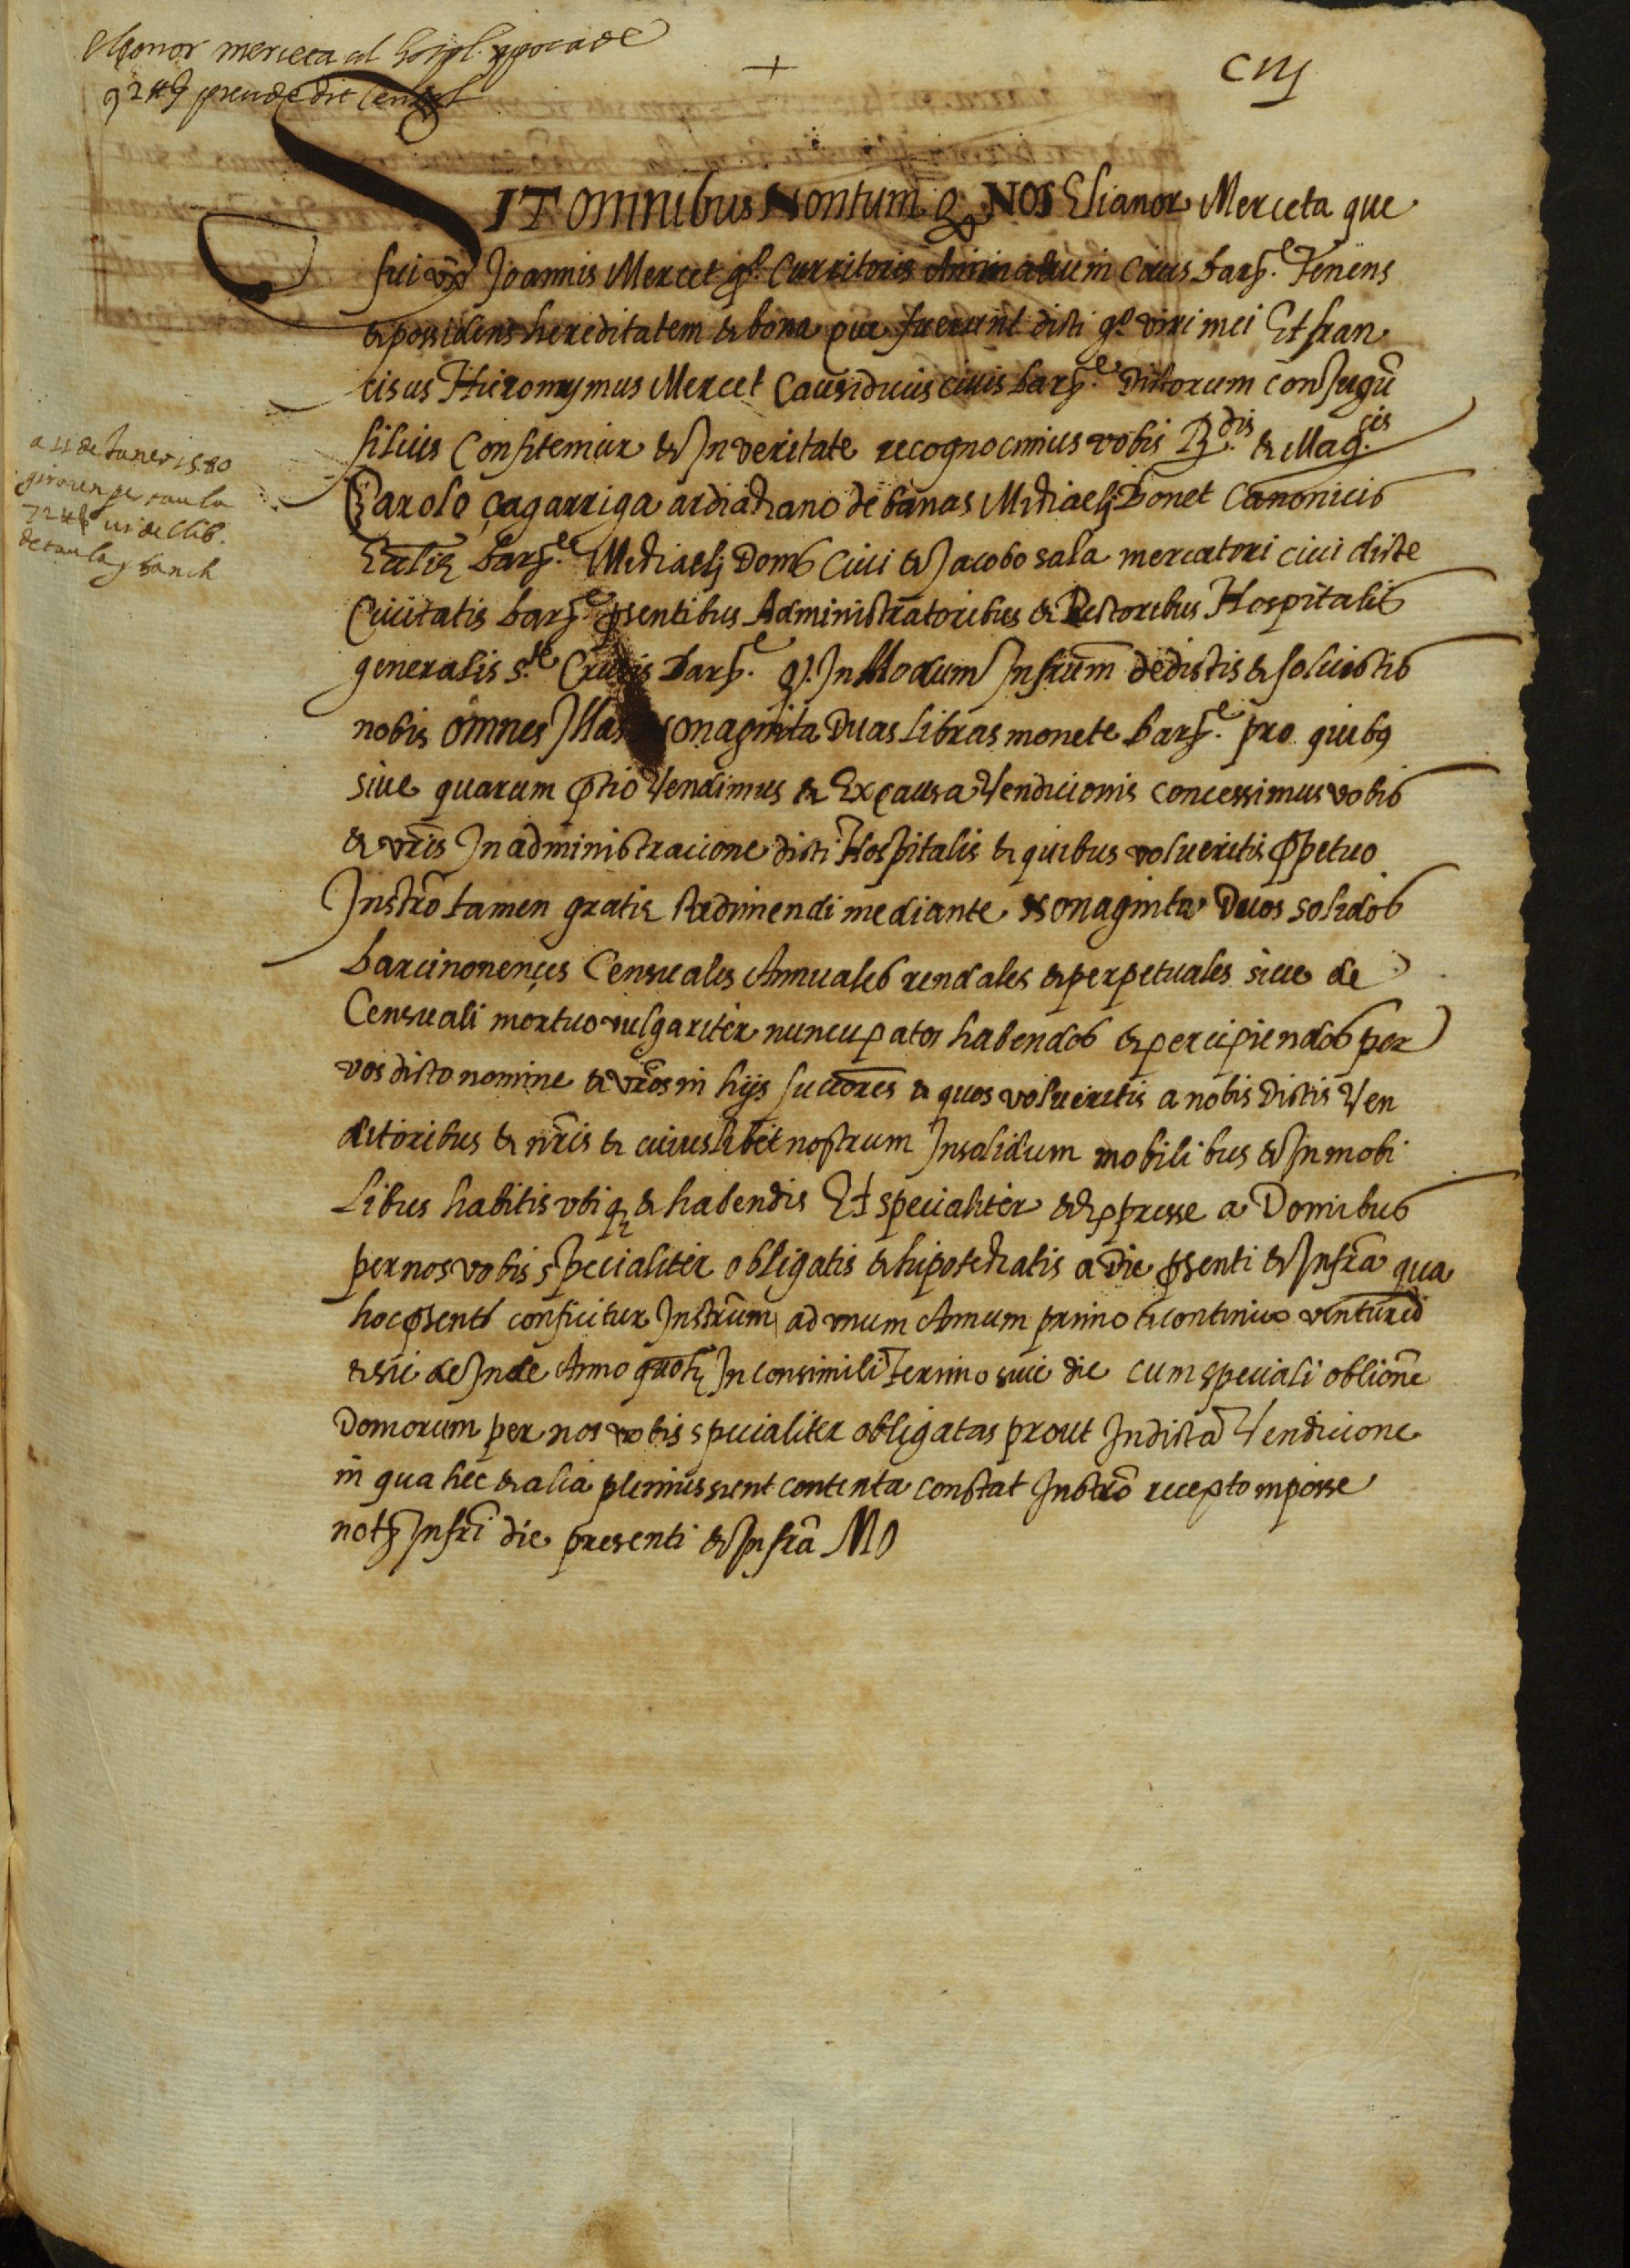 Elionor merceta al hospl. appoca de
92 ₶ 9 preu de dit censal
+
Ciij
SIT omnibus Nontum q̱ NOS Elianor Merceta que
fui vx̃ Joannis Mercet qº. Curritoris Animalium Civis barñe. Tenens
& possidens hereditatem & bona que fuerunt dicti qº viri mei Et fran
ciscus Hieronymus Mercet Causidicus civis barñe. Dictorum conjugũ
filius Confitemur & In veritate recognocimus vobis Rdis. & Magcis.
Carolo çagarriga ardiachano de banas Michaeli Bonet Canonicis
Ecclie barñe. Michaeli Doms Civi & Jacobo sala mercatori civi dicte
Civitatis barñe. p̃sentibus Administratoribus & Rectoribus Hospitalis
generalis S.te Crucis Barñe. q̱. In Modum Infrũm dedistis & soluistis
nobis omnes Illas Nonaginta Duas Libras monete barñe. pro quibꝰ
sive quarum p̃tio Vendimus & Ex causa Vendicionis concessimus vobis
& vr̃is In administracione dicti Hospitalis & quibus volueritis p̲petuo
Instrõ tamen gratie Redimendi mediante Nonaginta Duos Solidos
barcinonenses Censuales Annuales rendales & perpetuales sive de
Censuali mortuo vulgariter nuncupatos habendos & percipiendos per
vos dicto nomine & vr̃os in hijs succõres & quos volueritis a nobis dictis Ven
ditoribus & nr̃is & cuiuslibet nostrum Insolidum mobilibus & Inmobi
Libus habitis vbiqꝫ & habendis Et specialiter & expresse a Domibus
per nos vobis specialiter obligatis & hipotechatis a die p̃senti & Infrã qua
hoc p̃sens conficitur Instrũm ad vnum Annum primo & continuo venturũ
& sic deInde Anno quolꝫ In consimili Termino sive die cum speciali obliõne
Domorum per nos vobis specialiter obligatas prout In dicta Vendicione
in qua hec & alia plenius sunt contenta constat Instrõ recepto in posse
notꝫ Infri die presenti & Infrã Mo
a 11 de Janer 1580
giraren per taula
72 ₶ ut de llib.
de taula y banch